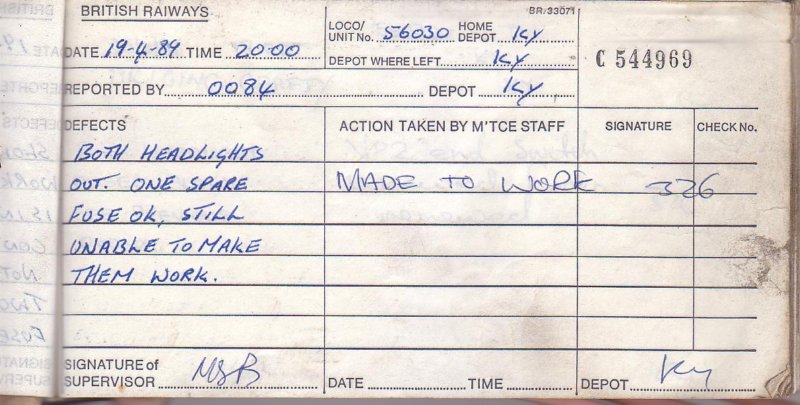 BRITISH RAIWAYS
BR.33071
LOCO/ UNIT No. 56030 HOME DEPOT KY
DATE 19-4-89 TIME 20-00
C 544969
DEPOT WHERE LEFT KY
REPORTED BY 0084 DEPOT KY
DEFECTS ACTION TAKEN BY M'TCE STAFF SIGNATURE CHECK No.
BOTH HEADLIGHTS
OUT. ONE SPARE MADE TO WORK 326
FUSE OK, STILL
UNABLE TO MAKE
THEM WORK.
SIGNATURE of
SUPERVISOR DATE TIME DEPOT KY